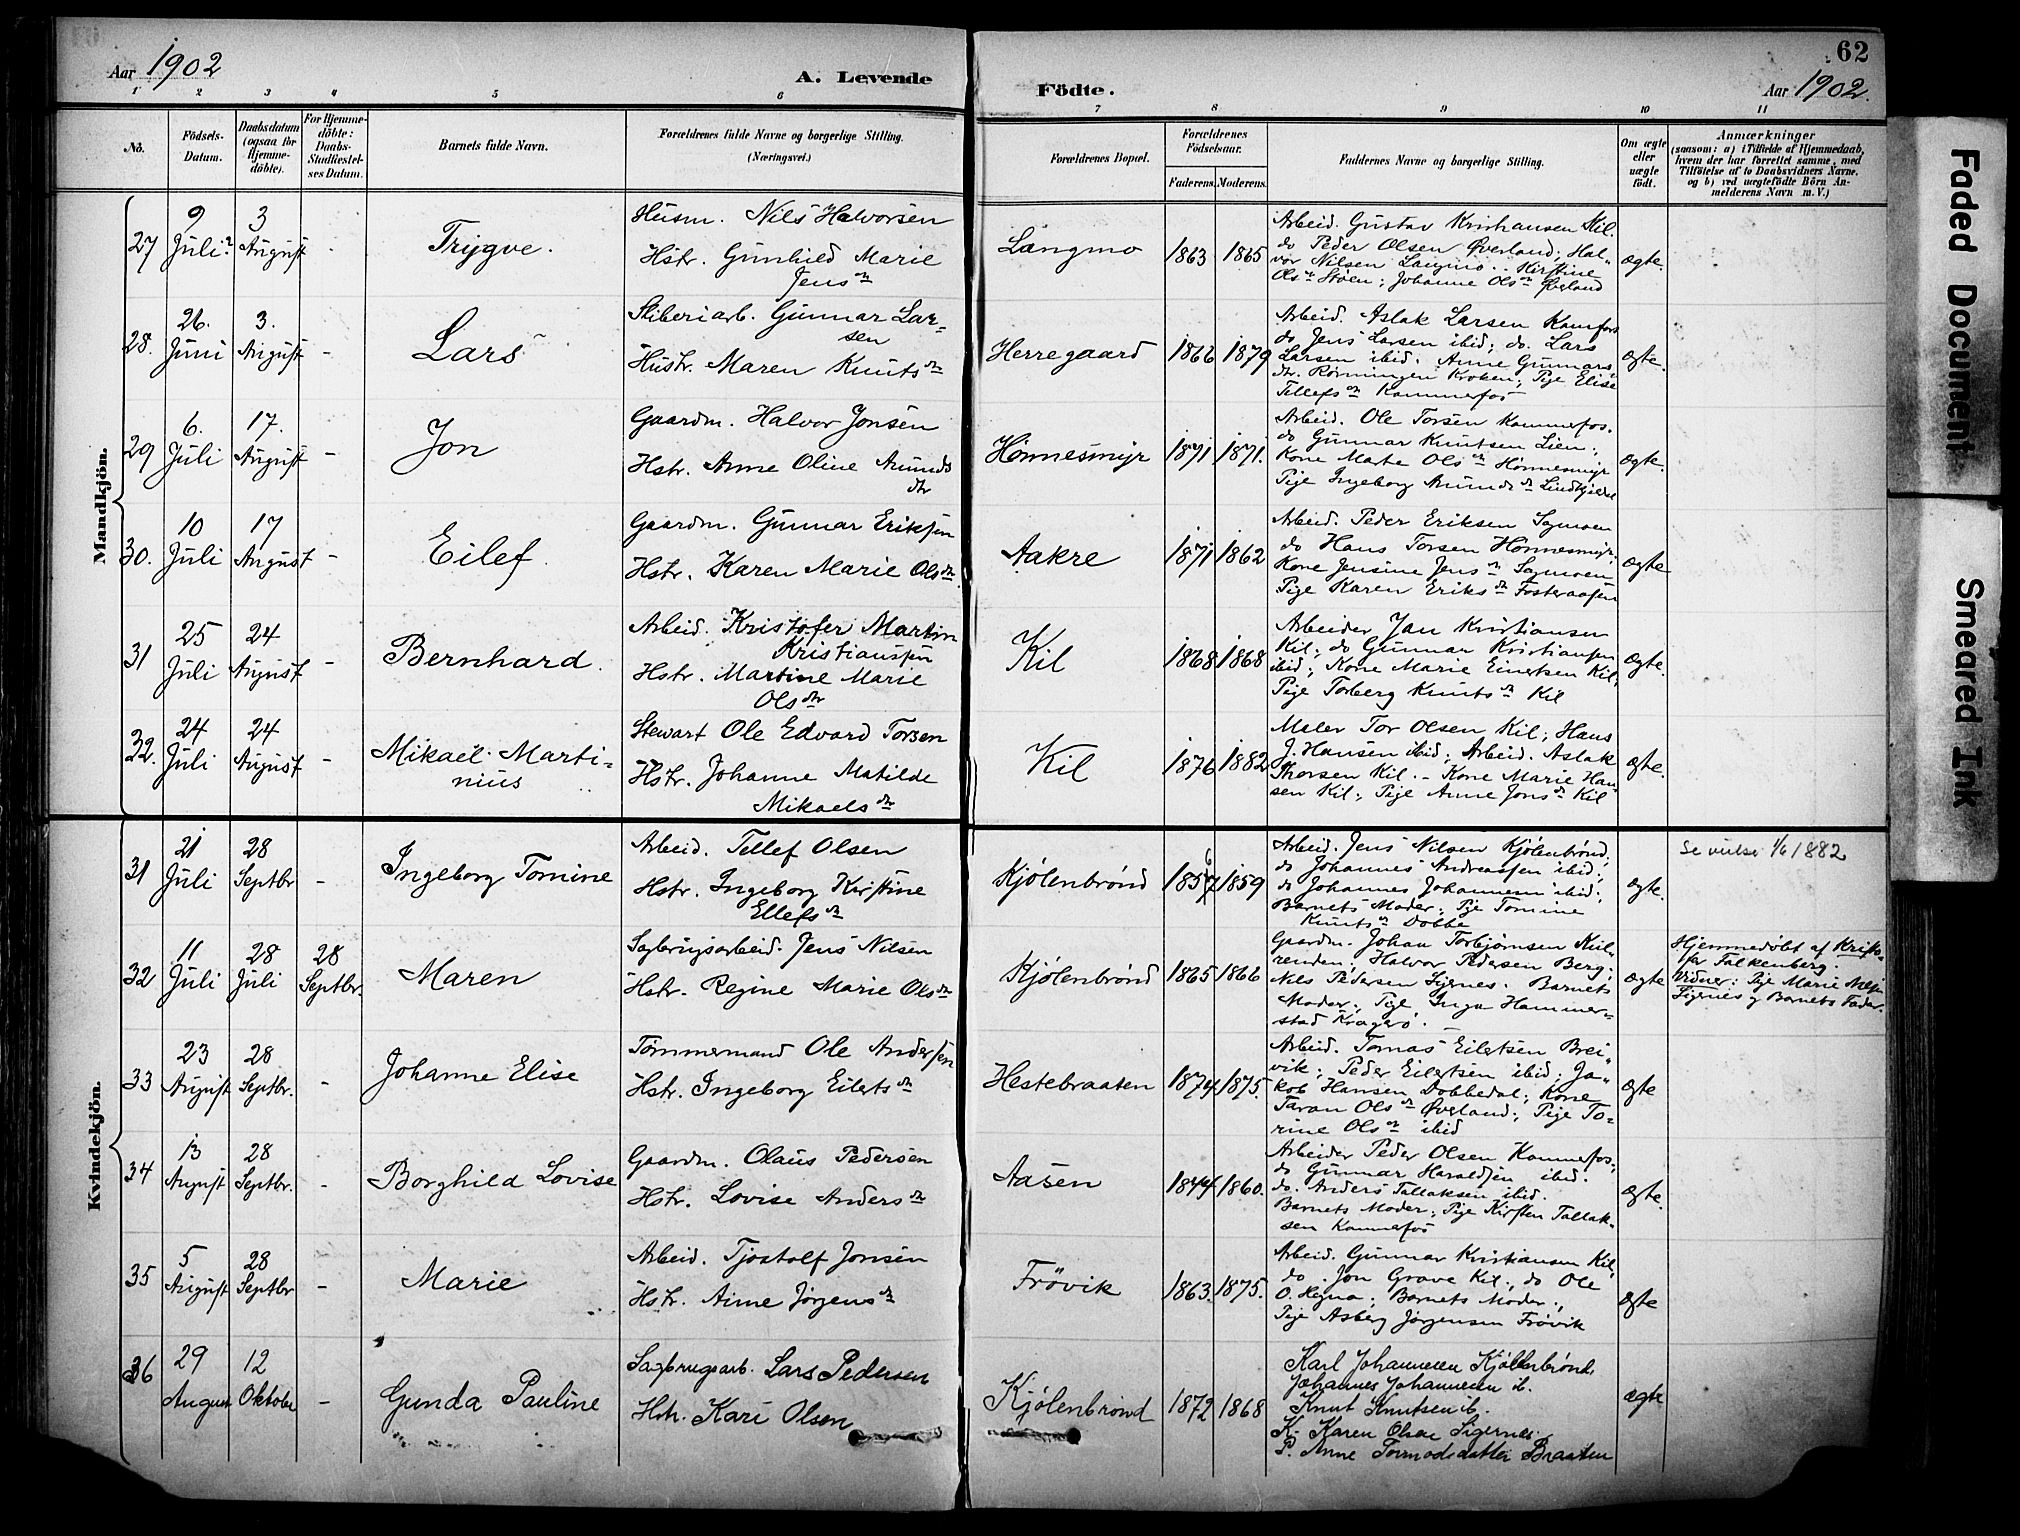 62
Aar 1902
A. Levende
Födte.
Aar 1902.
1 2 3 4 5 6 7 8 9 10 11
No.
Födsels-
Datum.
Daabsdatum
(ogsaa for
Hjemme-
döbte).
For Hjemme-
döbte:
Daabs-
Stadfæstel-
ses Datum.
Barnets fulde Navn.
Forældrenes fulde Navne og borgerlige Stilling.
(Næringsvei.)
Forældrenes Bopæl.
Forældrenes
Födselsaar.
Faderens. Moderens.
Faddernes Navne og borgerlige Stilling.
Om ægte
eller
uægte
födt.
Anmærkninger
(saasom: a) i Tilfælde af Hjemmedaab,
hvem der har forrettet samme, med
Tilföielse af to Daabsvidners Navne,
og b) ved uægtefödte Börn An-
melderens Navn m. V.)
Mandkjön.
27
9
Juli
3
August
Trygve.
Husm. Nils Halvorsen
Hstr. Gunhild Marie
Jensdtr
Langmo
1863
1865
Arbeid. Gustav Kristiansen Kil.
do Peder Olsen Øverland; Hal-
vor Nilsen Langmo. Kirstine
Olsdtr Støen; Johanne Olsdtr Øverland
ægte.
28.
26.
Juni
3.
August
-
Lars
Sliberiarb. Gunnar Lar-
sen
Hustr. Maren Knutsdtr
Herregaard
1866
1879
Arbeid. Aslak Larsen Kamfos
do Jens Larsen ibid; do. Lars
Larsen ibid. Anne Gunnars-
dtr. Rønningen Kroken; Pige Elise
Tellefsdtr Kammerfos
ægte.
29
6.
Juli
17.
August
-
Jon
Gaardm. Halvor Jonsen
Hstr. Anne Oline Amunds
dtr
Hønnesmyr
1871
1871.
Arbeid. Ole Torsen Kammefos.
do Gunnar Knutsen Lien;
Kone Marte Olsdtr Hønnesmyr
Pige Ingeborg Amundsdtr
ægte.
30.
10
Juli
17
August
-
Eilef
Gaardm. Gunnar Eriksen
Hstr. Karen Marie Olsdtr
Aakre
1871
1862
Arbeid. Peder Eriksen Sagmoen
do Hans Torsen Hønnesmyr;
Kone Jensine Jensdtr Sagmoen
Pige Karen Eriksdtr Fosteraasen
ægte
31
25
Juli
24
August
-
Bernhard.
Arbeid. Kristofer Martin
Kristiansen
Hstr. Martine Marie
Olsdtr
Kil
1868
1868
Arbeider Jan Kristiansen
Kil; do Gunnar Kristiansen
ibid; Kone Marie Einertsen Kil;
Pige Torberg Knutsdtr Kil
ægte.
32.
24
Juli
24
August
-
Mikael Marti-
nius
Stewart Ole Edvard Torsen
Hstr. Johanne Matilde
Mikaelsdtr
Kil
1876
1882
Maler Tor Olsen Kil; Hans
J. Hansen ibid; Arbeid. Aslak
Thorsen Kil. - Kone Marie Han-
sen Kil; Pige Anne Jonsdtr Kil
ægte.
Kvindekjön.
31
21
Juli
28
Septbr
-
Ingeborg Tomine
Arbeid. Tellef Olsen
Hstr. Ingeborg Kirstine
Ellefsdtr
Kjølenbrønd
1857
6
1859
Arbeid. Jens Nilsen Kjølenbrønd;
do Johannes Andreassen ibid;
do Johannes Johannesen ibid;
Barnets Moder; Pige Tomine
Knutsdtr Dobbe
ægte.
Se 1/6 1882
32
11
Juli
28
Juli
28
Septbr.
Maren
Sagbrugsarbeid. Jens Nilsen
Hstr. Regine Marie Olsdtr
Kjølenbrønd
1865
1866
Gaardm. Johan Torbjørnsen
Halvor Pedersen Berg;
Nils Pedersen Sigernes. Barnets
Moder; Pige Inga Hammer-
stad Kragerø.
ægte
Hjemmedøbt af Kristo-
fer Falkenberg.
Vidner: Pige Marie Nilsen
Sigernes og Barnets Fader.
33
23
August
28
Septbr.
-
Johanne Elise
Tømmermand Ole Andersen
Hstr. Ingeborg Eilertsdtr
Hestebraaten
1874
1875.
Arbeid. Tomas Eilertsen Brei-
vik; Peder Eilertsen ibid; Ja-
kob Hansen Dobbedal; Kone
Taran Olsdtr Øverland; Pige To-
rine Olsdtr ibid
ægte
34
13
August
28
Septbr.
-
Borghild Lovise
Gaardm. Olaus Pedersen
Hstr. Lovise Andersdtr
Aasen
1860.
Arbeider Peder Olsen Kammefos;
do Gunnar Haraldsen ibid.
do. Anders Tallaksen ibid.
Barnets Moder; Pige Kirsten Tallak-
sen Kammefos
ægte.
35
5
August
28
Septbr
-
Marie
Arbeid. Tjostolf Jonsen
Hstr. Anne Jørgensdtr
Frövik
1863.
1875.
Arbeid. Gunnar Kristiansen Kil;
do. Jon Grave Kil; do Ole
O. Hegna; Barnets Moder;
Pige Asberg Jørgensen Frövik
ægte
36
29
August
12
Oktober
-
Gunda Pauline
Sagbrugsarb. Lars Pedersen
Hstr. Kari Olsen
Kjølenbrønd
1872
1868
Karl Johannesen Kjølenbrønd,
Johannes Johannesen ib.
Knut Knutsen ib.
K. Karen Olsen Sigernes.
P. Anne Tormodsdatter Braaten
ægte
Faded Document
Smeared Ink